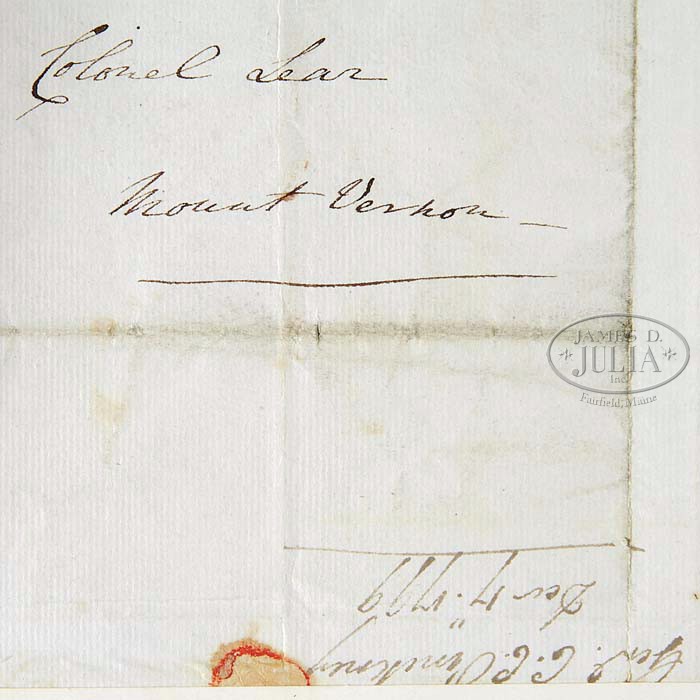 Colonel Lear
Mount Vernon —
JAMES D.
JULIA
Inc.
Fairfield, Maine
Genl. C. C. Pinckney
Dec 17. 1799